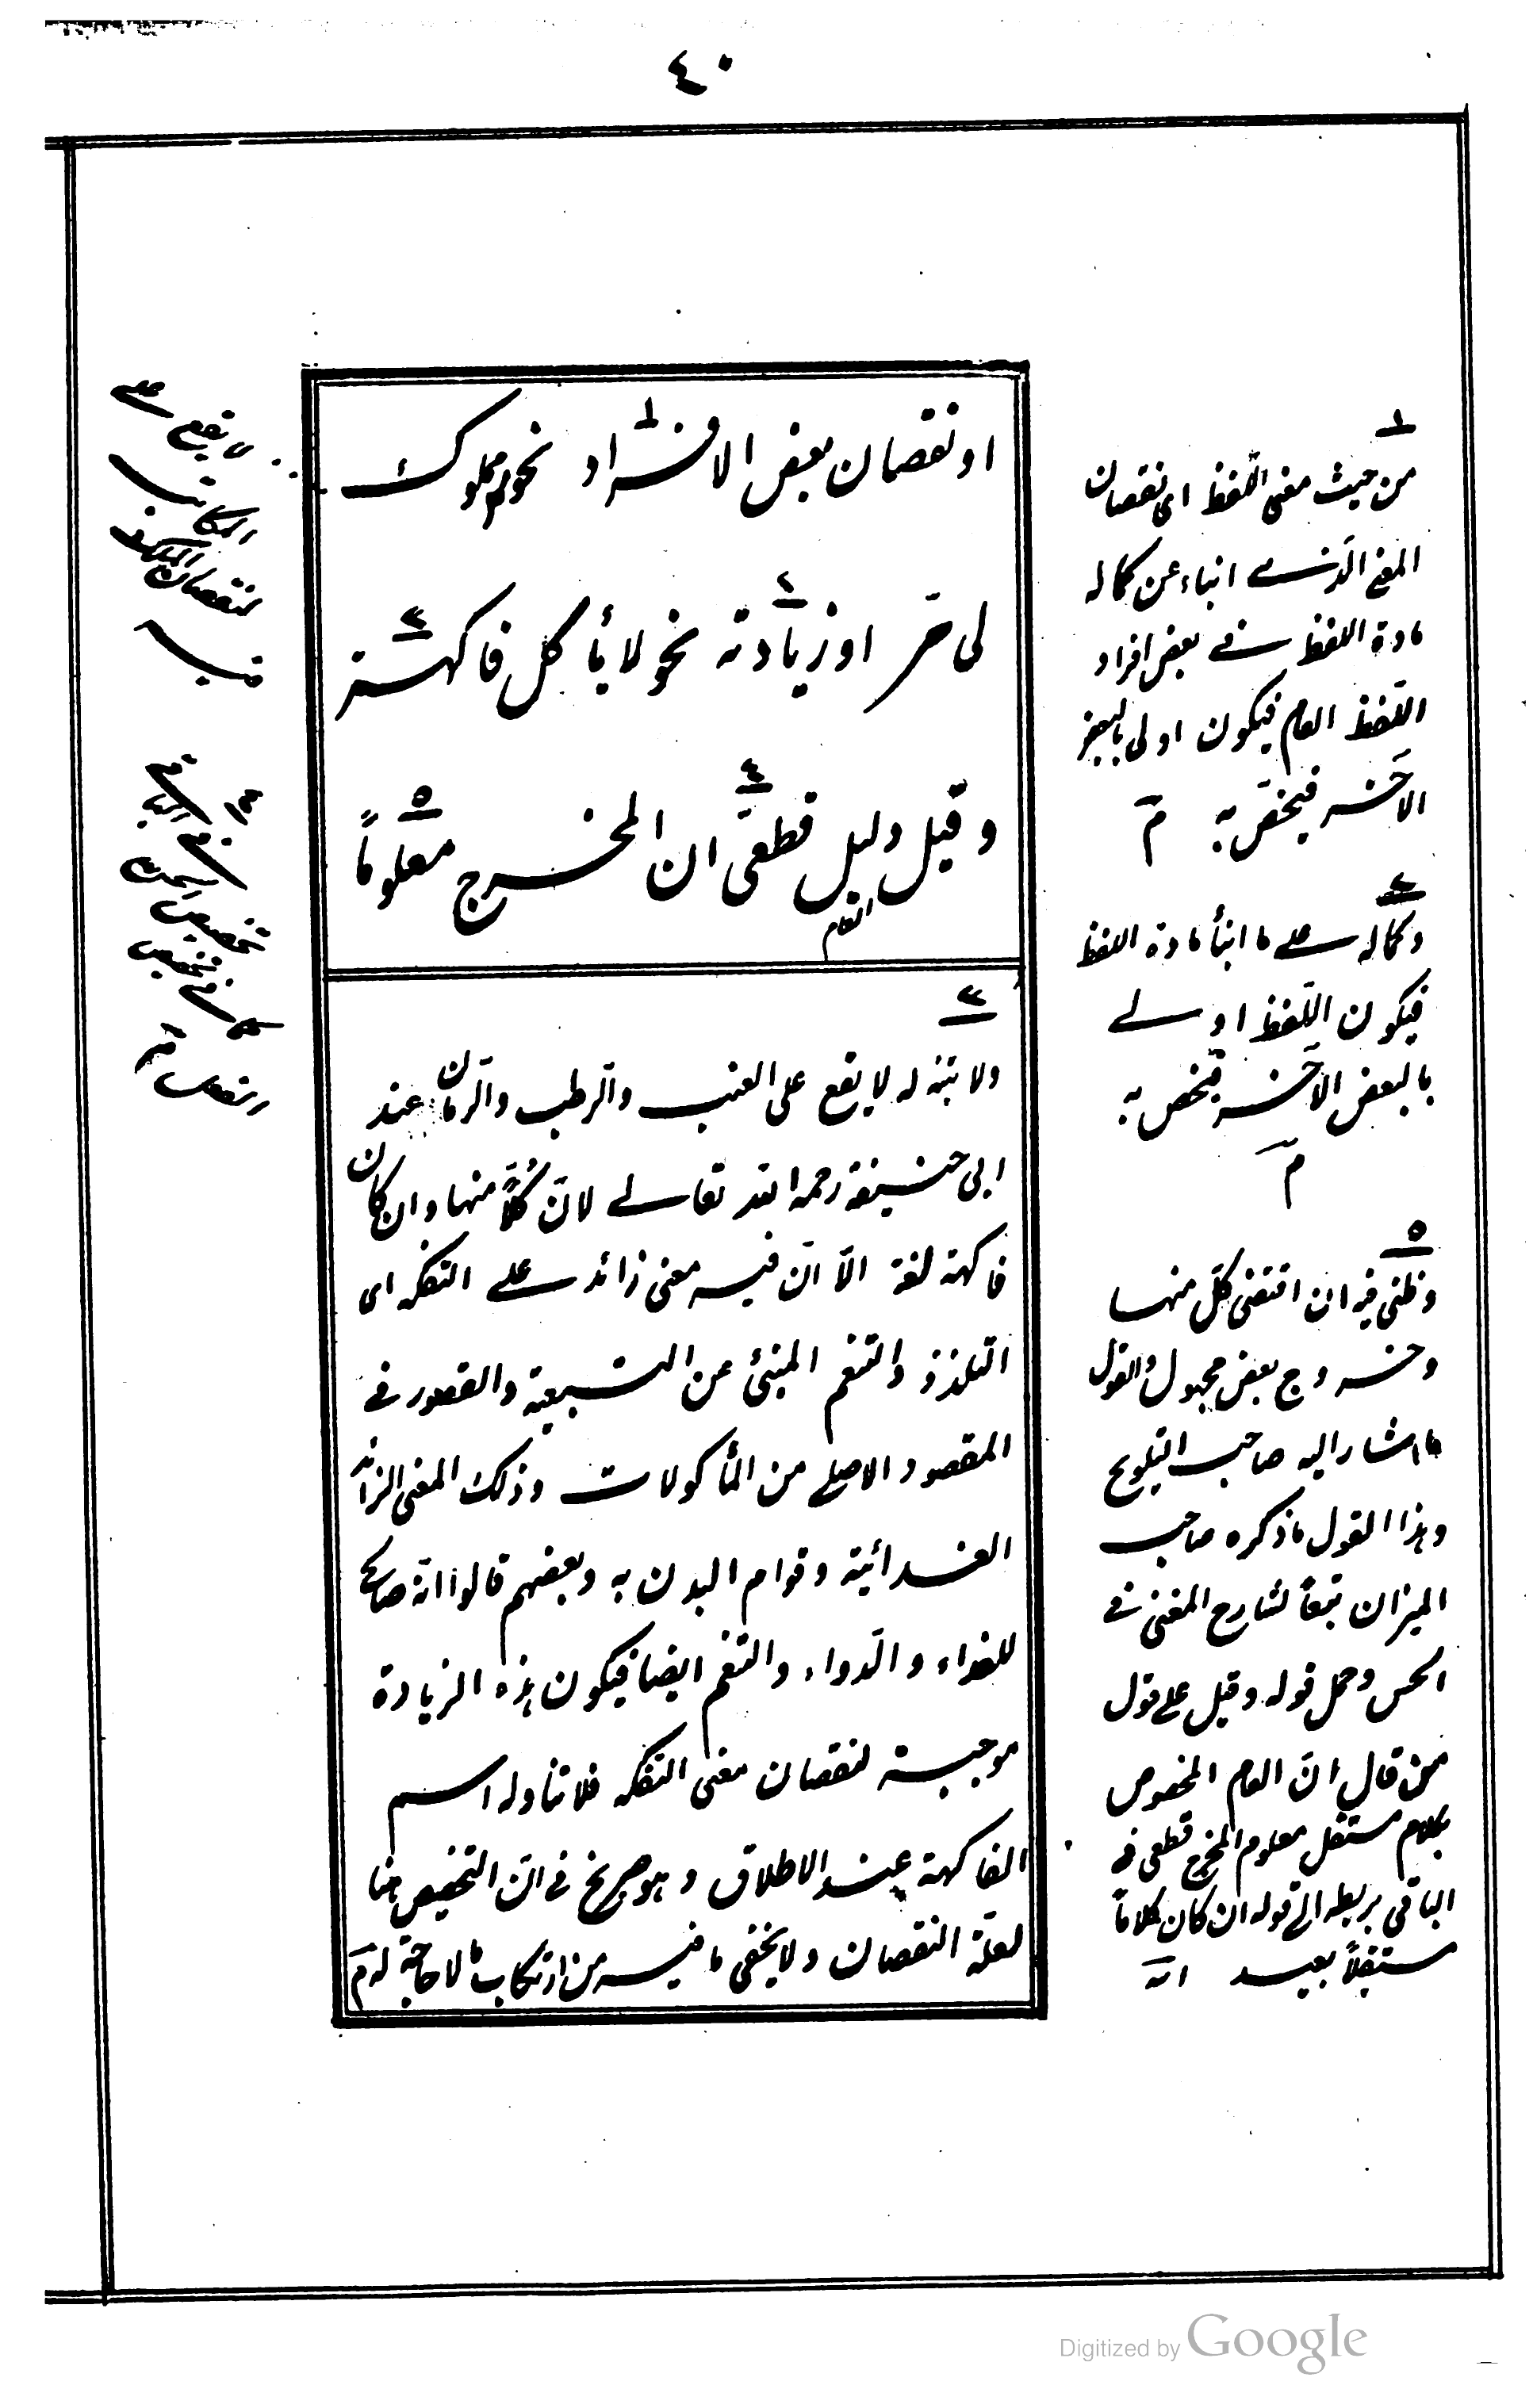 ٤٠
او نقصان بعض الافراد نحو كل مملوك
لى حر او زيادته نحو لا يأكل فاكهة
وقيل دليل قطعى ان المخرج معلوماً
العام
٣
ولا نية له لا يقع على العنب والرطب والرمان عند
ابى حنيفة رحمه الله تعالے لانّ كُلّاً منها وان كان
فاكهة لغة الّا انّ فيه معنى زائد علے التفكه اى
التلذذ والتنعم المنبئ عن التبعية والقصور فے
المقصود الاصلے من المأكولات وذلك المعنى الزائد
الغدائية وقوام البدن به وبعضهم قالوا انه صالح
للغداء والدواء والتنعم ايضا فيكون هذه الزيادة
موجبة لنقصان معنى التفكه فلا تتناوله اسم
الفاكهة عند الاطلاق وهو صريح فى انّ التخصيص هنا
لعلّة النقصان ولا يخفى ما فيه من ارتكاب ما لا حاجة له م
١
من حيث معنى اللفظ اى نقصان
المعنى الّذے انباء عن كماله
مادة اللفظ فے بعض افراد
اللفظ العام فيكون اولى بالبعض
الآخر فيختص به م
٢
وكماله علے ما انبأ مادة اللفظ
فيكون اللفظ اولے
بالبعض الآخر فيختص به
م
٥
وظنى فيه ان اقتضى كلّ منها
وخروج بعض مجهول والقول
ما اشار اليه صاحب التلويح
وهذا القول ما ذكره صاحب
الميزان تبعاً لشارح المغنى فے
الحس وحمل قوله وقيل على قول
من قال انّ العام المخصوص
بكلام مستقل معلوم المخرج قطعى فے
الباقى بربطه الى قوله ان كان كلاماً
مستقلاً بعيد انه
لا يقع علے
المكاتب
لنقصان الملك
فيه
٤
فے الباقے